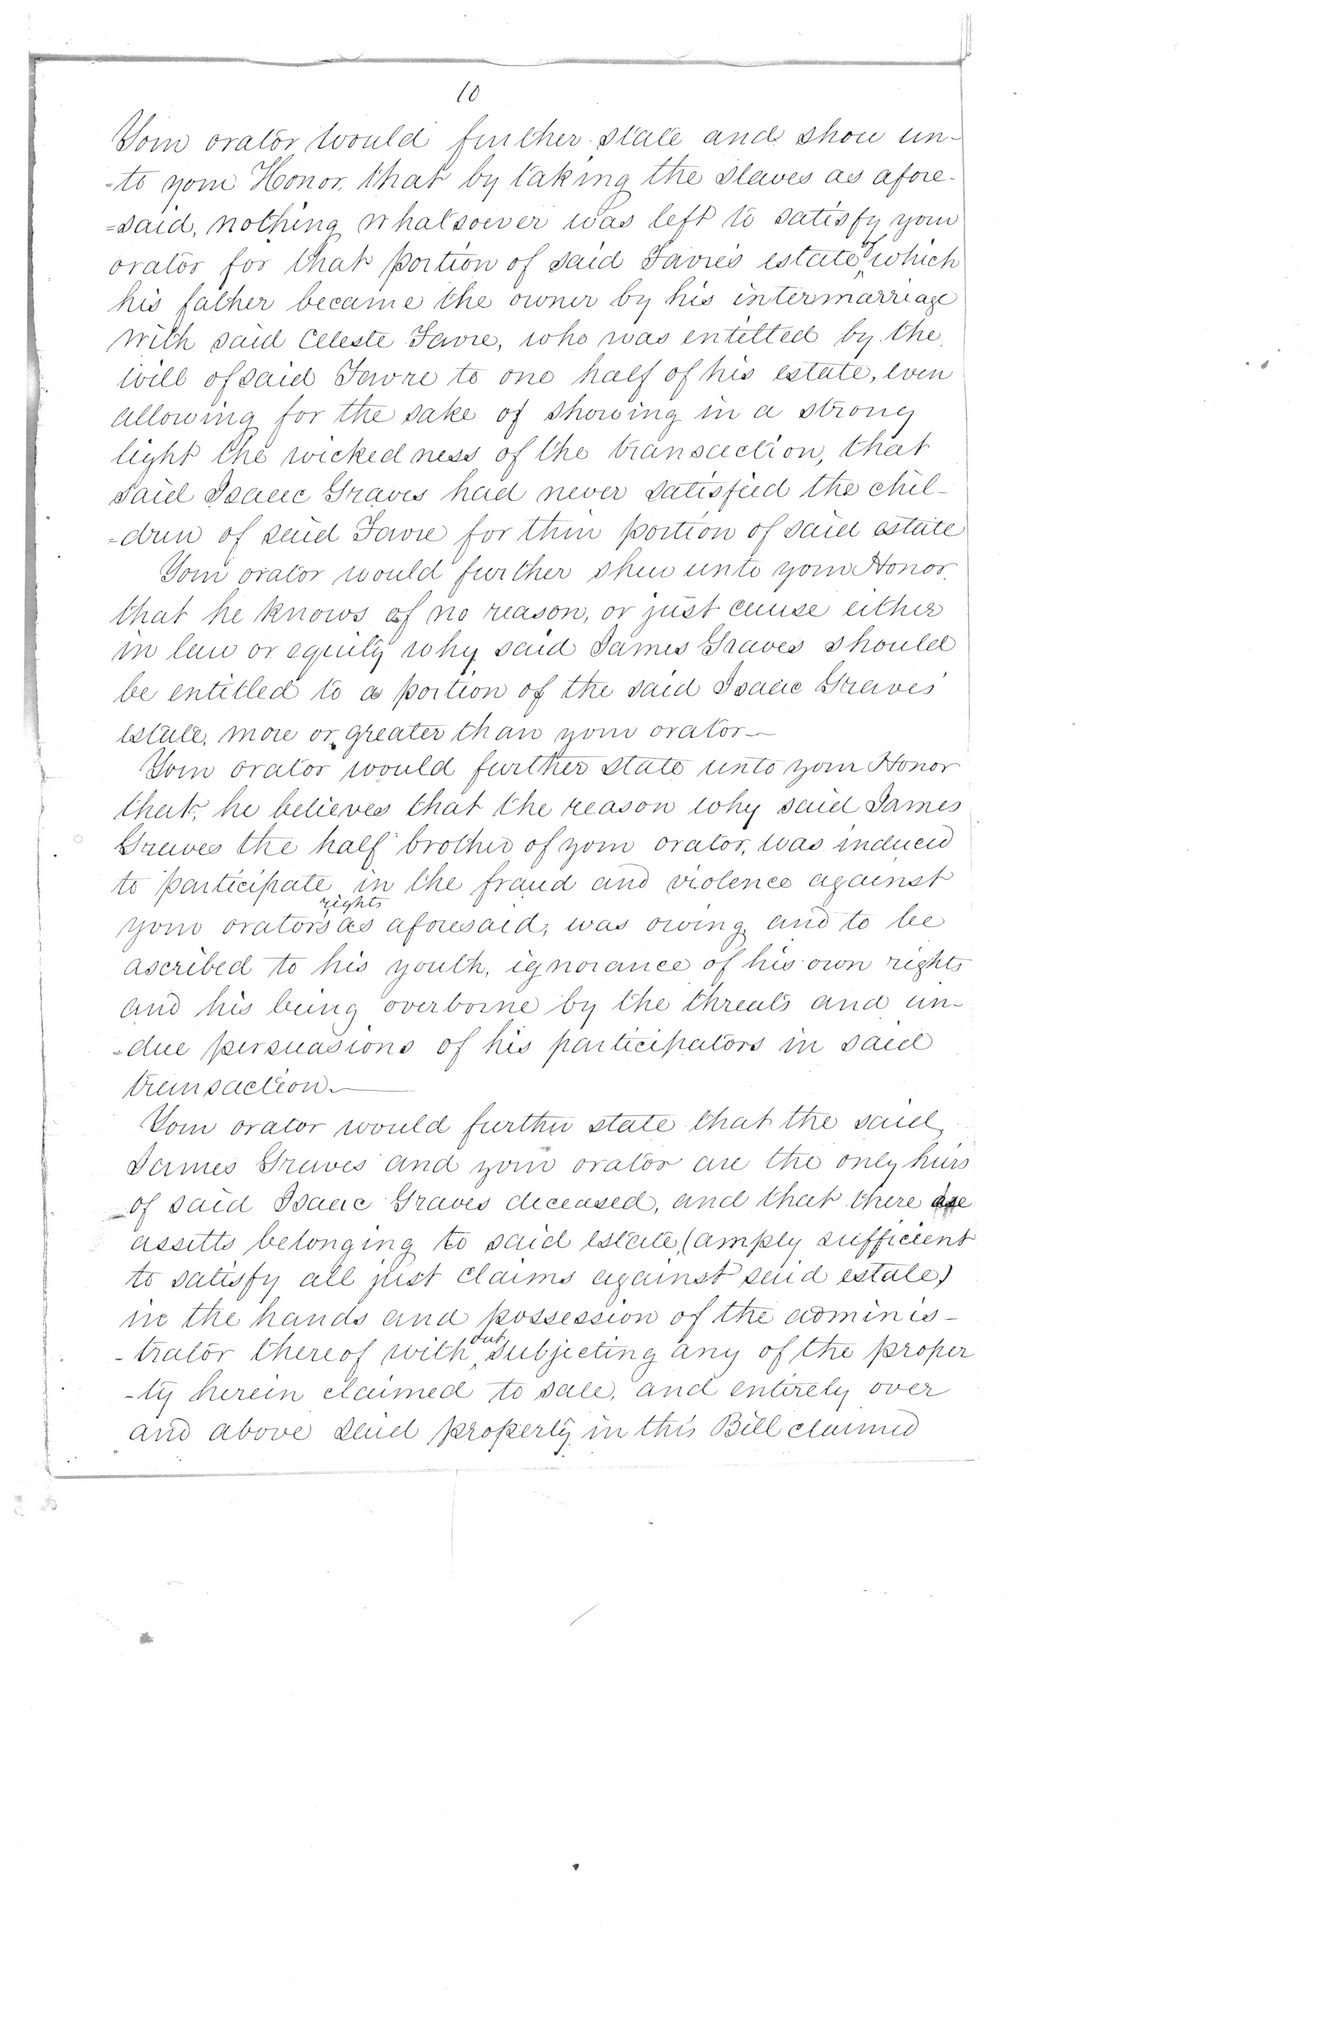 10
Your orator would further state and show un-
-to your Honor, that by taking the slaves as afore-
=said, nothing whatsoever was left to satisfy your
orator for that portion of said Favre's estate of which
his father became the owner by his intermarriage
with said Celeste Favre, who was entitled by the
will of said Favre to one half of his estate, even
allowing for the sake of showing in a strong
light the wickedness of the transaction, that
said Isaac Graves had never satisfied the chil-
-dren of said Favre for their portion of said estate
Your orator would further shew unto your Honor
that he knows of no reason, or just cause either
in law or equity why said James Graves should
be entitled to a portion of the said Isaac Graves'
estate, more or greater than your orator—
Your orator would further state unto your Honor
that, he believes that the reason why said James
Graves the half brother of your orator, was induced
to participate in the fraud and violence against
your orators rights as aforesaid, was owing and to be
ascribed to his youth, ignorance of his own rights
and his being overborne by the threats and un-
-due persuasions of his participators in said
transaction.—
Your orator would further state that the said
James Graves and your orator are the only heirs
of said Isaac Graves deceased, and that there are
assetts belonging to said estate, (amply sufficient
to satisfy all just claims against said estate)
in the hands and possession of the adminis-
-trator thereof without subjecting any of the proper
-ty herein claimed to sale, and entirely over
and above said property in this Bill claimed